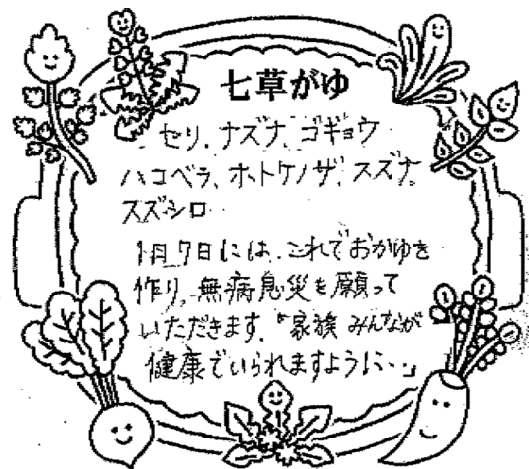 七草がゆ
セリ、ナズナ、ゴギョウ
ハコベラ、ホトケノザ、スズナ
スズシロ
1月7日には、これでおかゆを
作り、無病息災を願って
いただきます。「家族みんなが
健康でいられますように…」